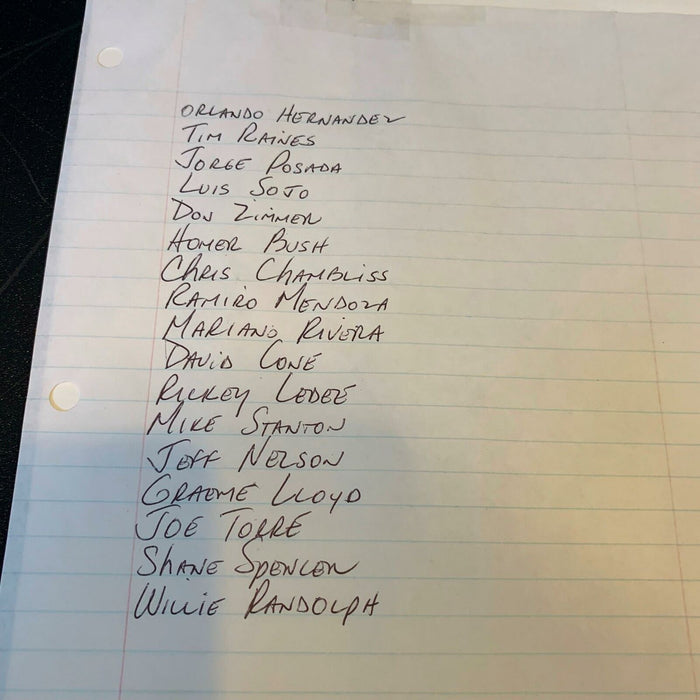 ORLANDO HERNANDEZ
TIM RAINES
JORGE POSADA
LUIS SOJO
DON ZIMMER
HOMER BUSH
CHRIS CHAMBLISS
RAMIRO MENDOZA
MARIANO RIVERA
DAVID CONE
RICKEY LEDEE
MIKE STANTON
JEFF NELSON
GRAEME LLOYD
JOE TORRE
SHANE SPENCER
WILLIE RANDOLPH